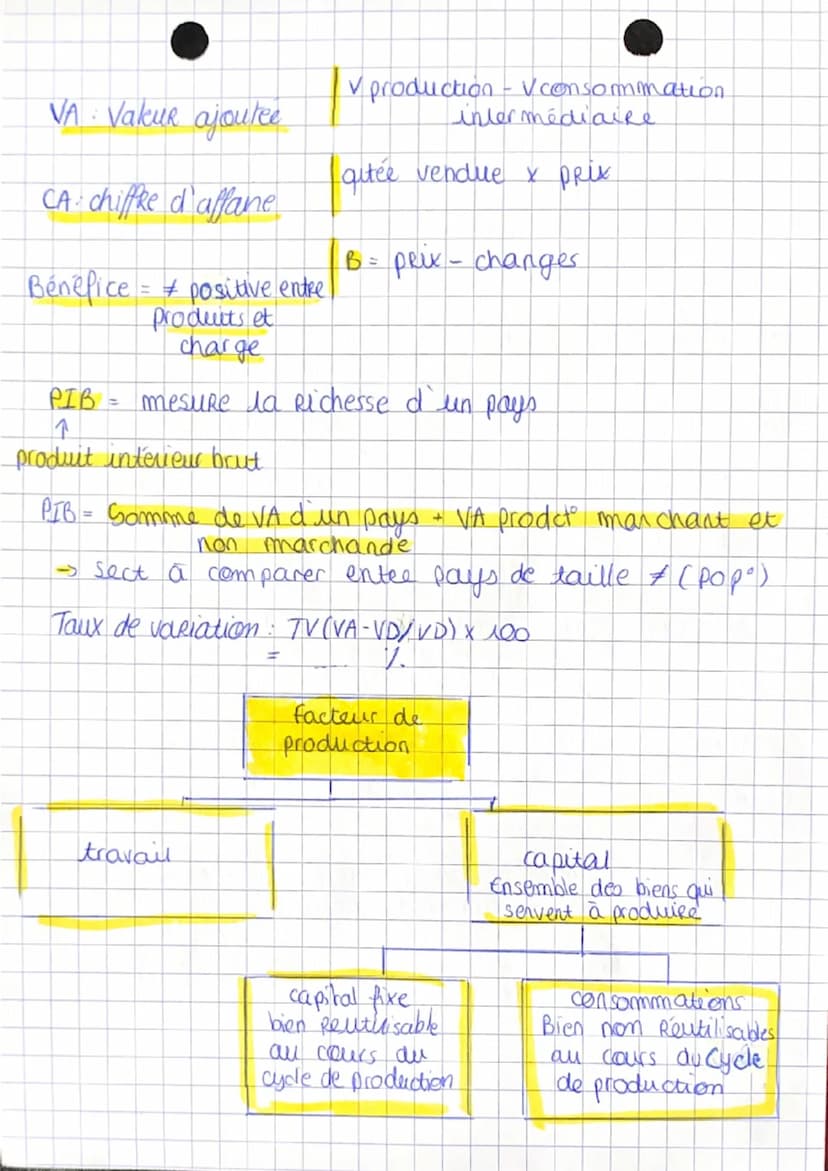 VA : Valeur ajoutée
V production - V consommation
intermédiaire
CA : chiffre d'affaire
qtée vendue x prix
Bénéfice = ≠ positive entre
produits et
charge
B = prix - charges
PIB = mesure la richesse d'un pays
↑
produit intérieur brut
PIB = Somme de VA d'un pays + VA prodct° marchant et
non marchande
→ sect à comparer entee pays de taille ≠ (pop°)
Taux de variation : TV (VA-VD/VD) x 100
= .... %
facteur de
production
travail
capital
Ensemble des biens qui
servent à produire
capital fixe
bien reutilisable
au cours du
cycle de production
consommations
Bien non Réutilisables
au cours du Cycle
de production